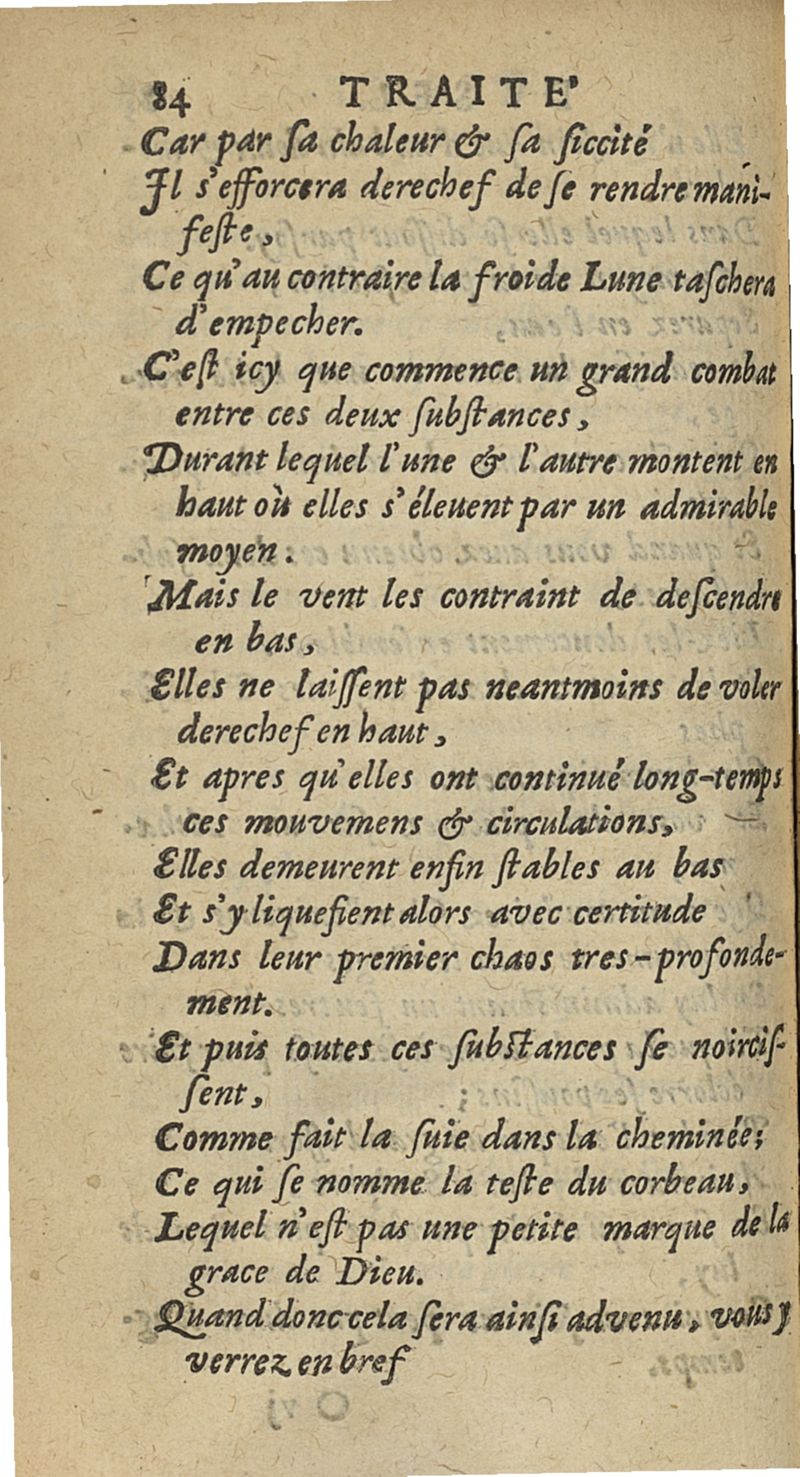 84 TRAITE'
Car par ſa chaleur & ſa ſiccité
Il s'efforcera derechef de ſe rendre mani-
feſte,
Ce qu'au contraire la froide Lune taſchera
d'empecher.
C'eſt icy que commence un grand combat
entre ces deux ſubſtances,
Durant lequel l'une & l'autre montent en
haut où elles s'éleuent par un admirable
moyen.
Mais le vent les contraint de deſcendre
en bas,
Elles ne laiſſent pas neantmoins de voler
derechef en haut,
Et apres qu'elles ont continué long-temps
ces mouvemens & circulations,
Elles demeurent enfin ſtables au bas
Et s'y liquefient alors avec certitude
Dans leur premier chaos tres-profonde-
ment.
Et puis toutes ces ſubſtances ſe noirciſ-
ſent,
Comme fait la ſuie dans la cheminée;
Ce qui ſe nomme la teſte du corbeau,
Lequel n'eſt pas une petite marque de la
grace de Dieu.
Quand donc cela ſera ainſi advenu, vous y
verrez en bref